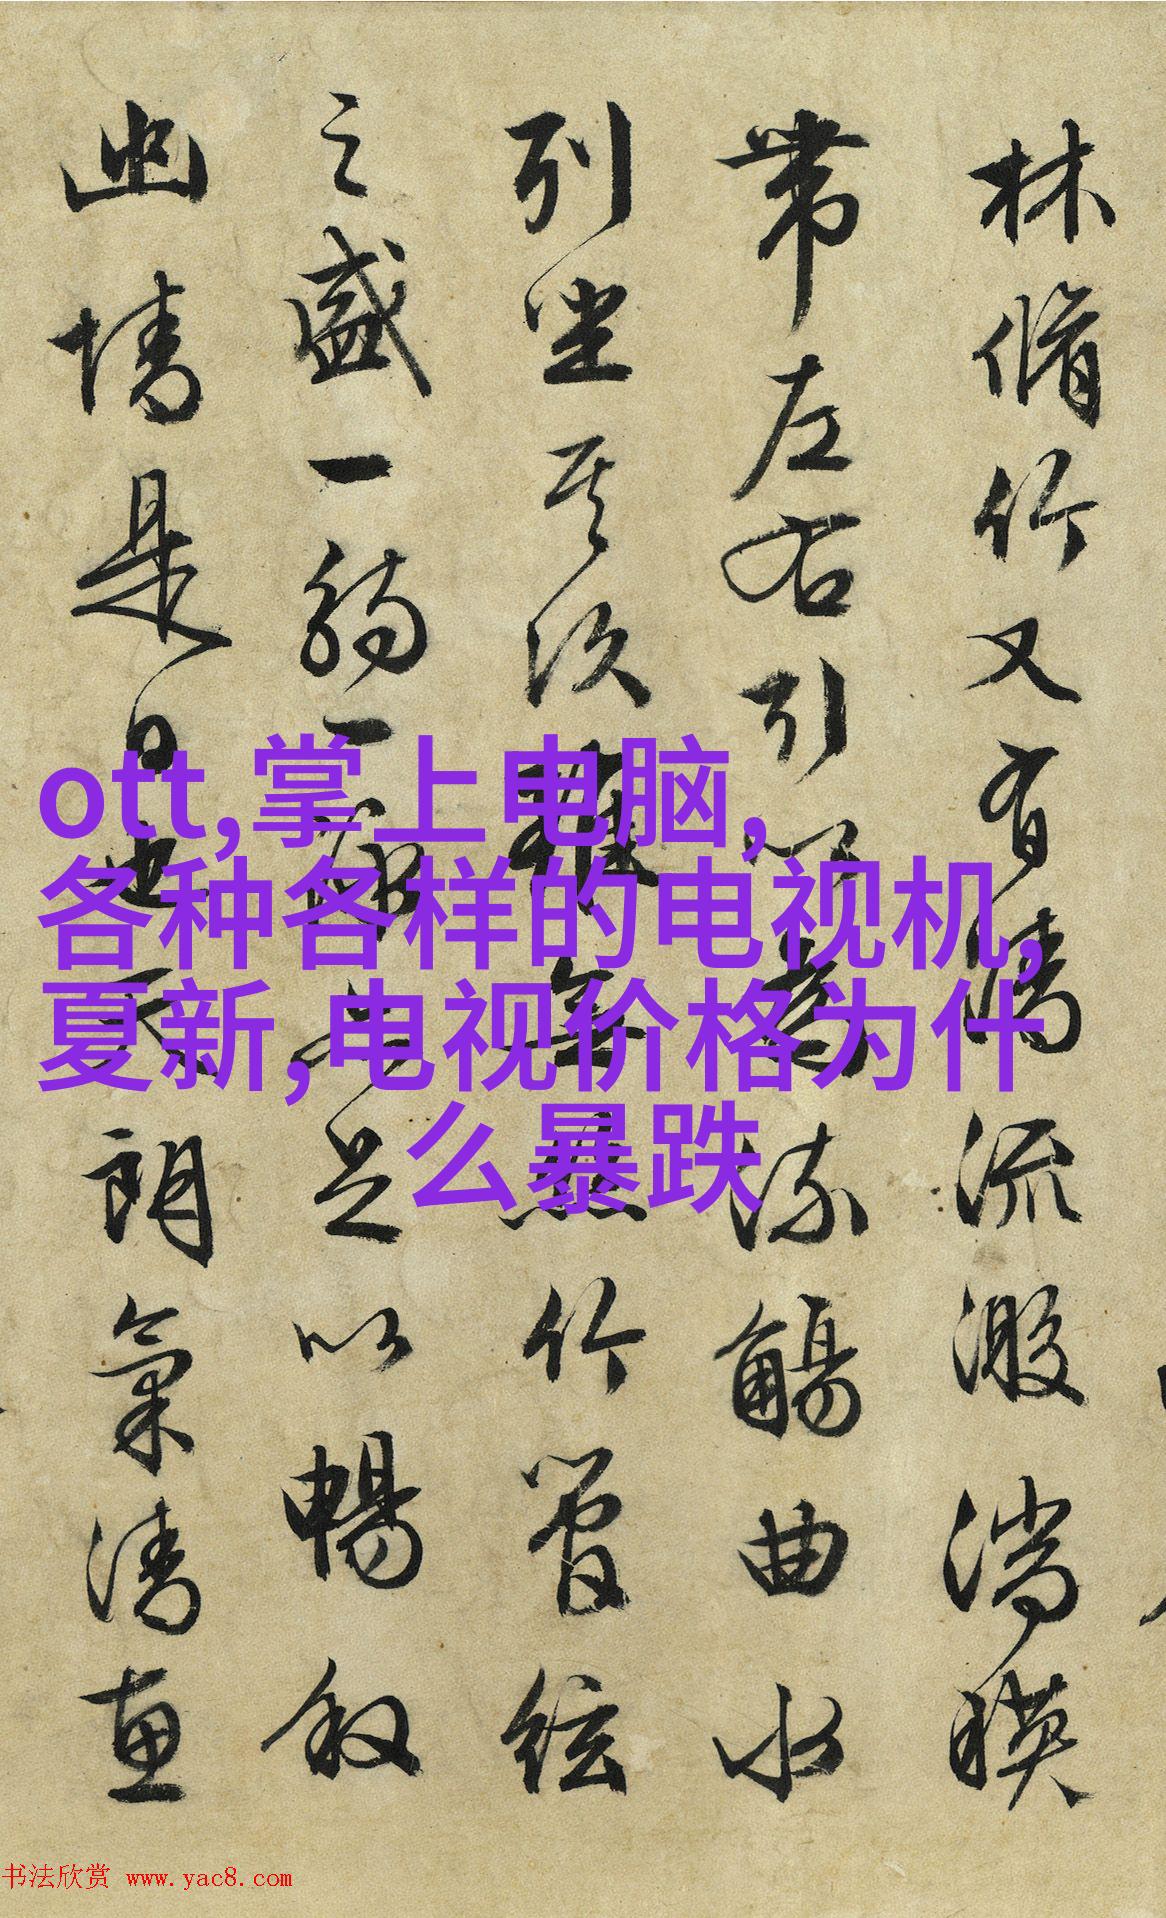 林脩竹又有清流激湍暎
帶左右引以為流觴曲水
列坐其次雖無絲竹管絃
之盛一觴一詠亦足以暢敘
幽情是日也天朗氣清惠
ott,掌上电脑,
各种各样的电视机,
夏新,电视价格为什
么暴跌
书法欣赏 www.yac8.com